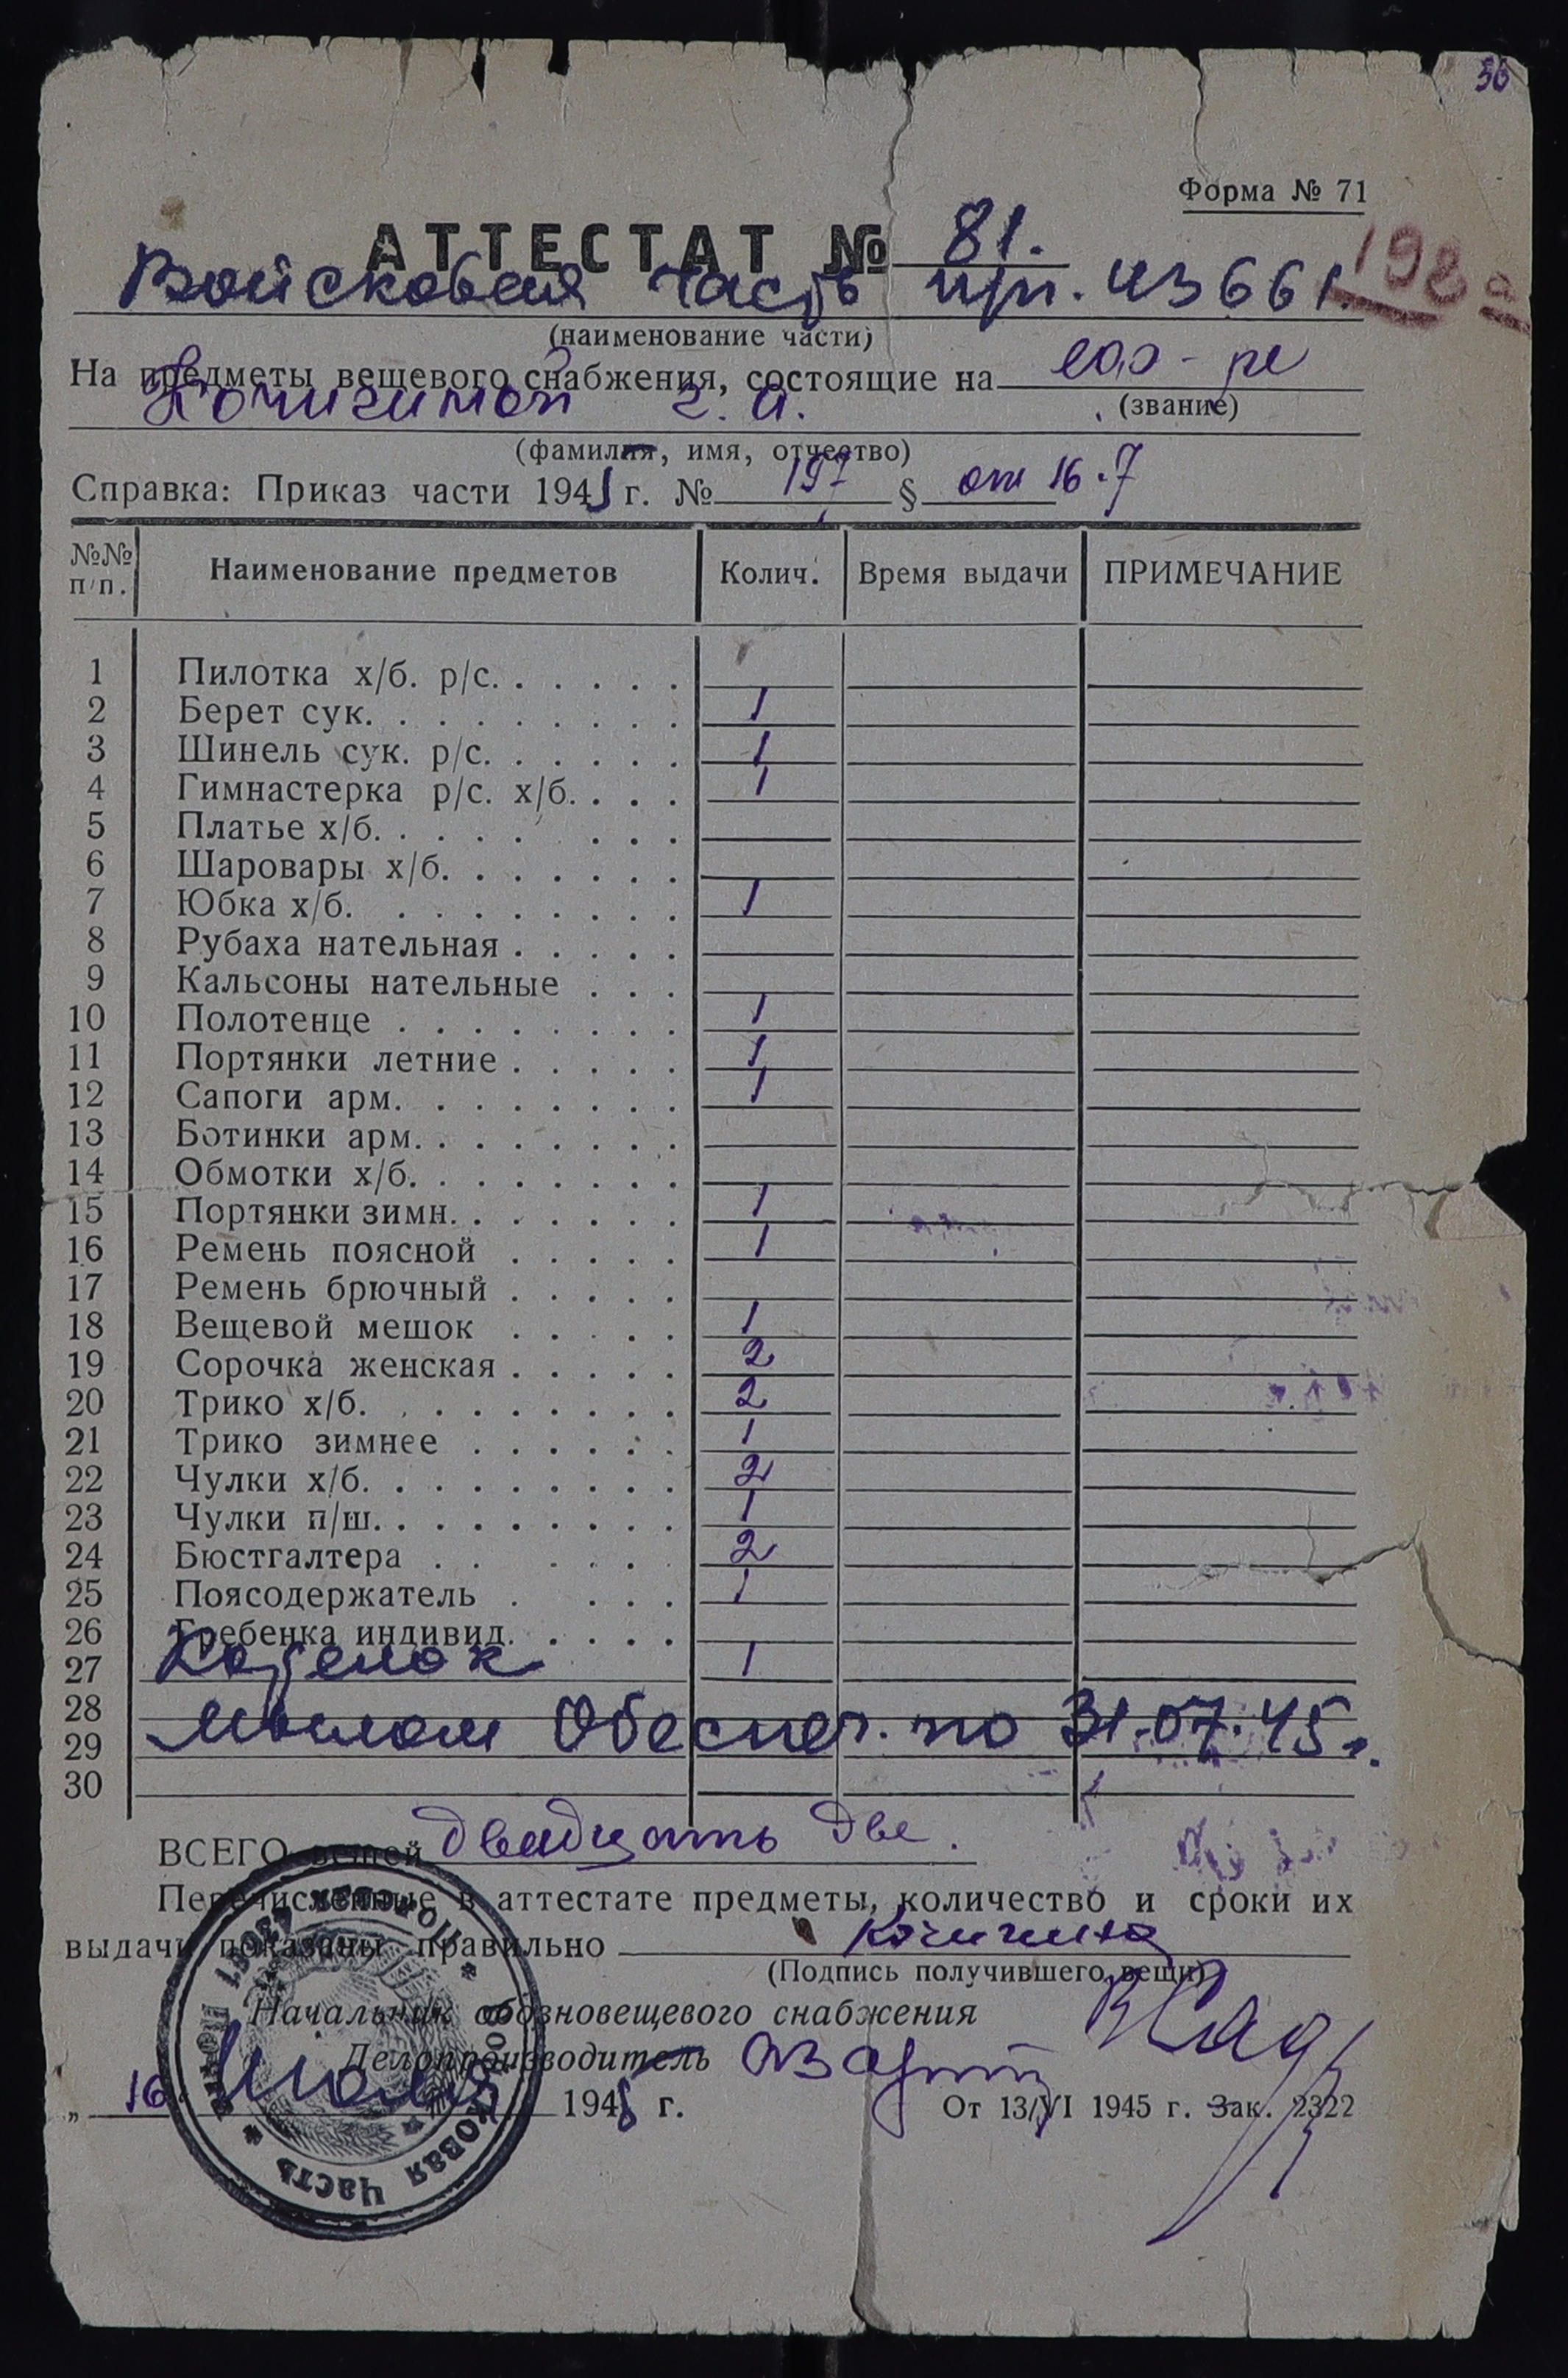 56
Форма № 71
АТТЕСТАТ № 81.
198 а
Войсковая часть п/п. 43661.
(наименование части)
На предметы вещевого снабжения, состоящие на
(звание)
Кочигиной З. А.
(фамилия, имя, отчество)
Справка: Приказ части 1945 г. № 197 § от 16.7
№№ п/п. Наименование предметов Колич. Время выдачи ПРИМЕЧАНИЕ
1 Пилотка х/б. р/с. . . . . .
2 Берет сук. . . . . . . . . 1
3 Шинель сук. р/с. . . . . . 1
4 Гимнастерка р/с. х/б. . . . 1
5 Платье х/б. . . . . . . .
6 Шаровары х/б. . . . . . .
7 Юбка х/б. . . . . . . . 1
8 Рубаха нательная . . . . .
9 Кальсоны нательные . . .
10 Полотенце . . . . . . . . 1
11 Портянки летние . . . . . 1
12 Сапоги арм. . . . . . . . 1
13 Ботинки арм. . . . . . . .
14 Обмотки х/б. . . . . . . .
15 Портянки зимн. . . . . . . 1
16 Ремень поясной . . . . . 1
17 Ремень брючный . . . . .
18 Вещевой мешок . . . . . 1
19 Сорочка женская . . . . . 2
20 Трико х/б. . . . . . . . . 2
21 Трико зимнее . . . . . . 1
22 Чулки х/б. . . . . . . . . 2
23 Чулки п/ш. . . . . . . . . 1
24 Бюстгалтера . . . . . . 2
25 Поясодержатель . . . . 1
26 Гребенка индивид. . . . .
27 Котелок 1
28
29 Мылом обеспеч. по 31.07.45 г.
30
ВСЕГО вещей двадцать две.
Перечисленные в аттестате предметы, количество и сроки их
выдачи показаны правильно Кочигина
(Подпись получившего вещи)
Начальник обозновещевого снабжения
Делопроизводитель
„ 16 " июля 1945 г.
От 13/VI 1945 г. Зак. 2322